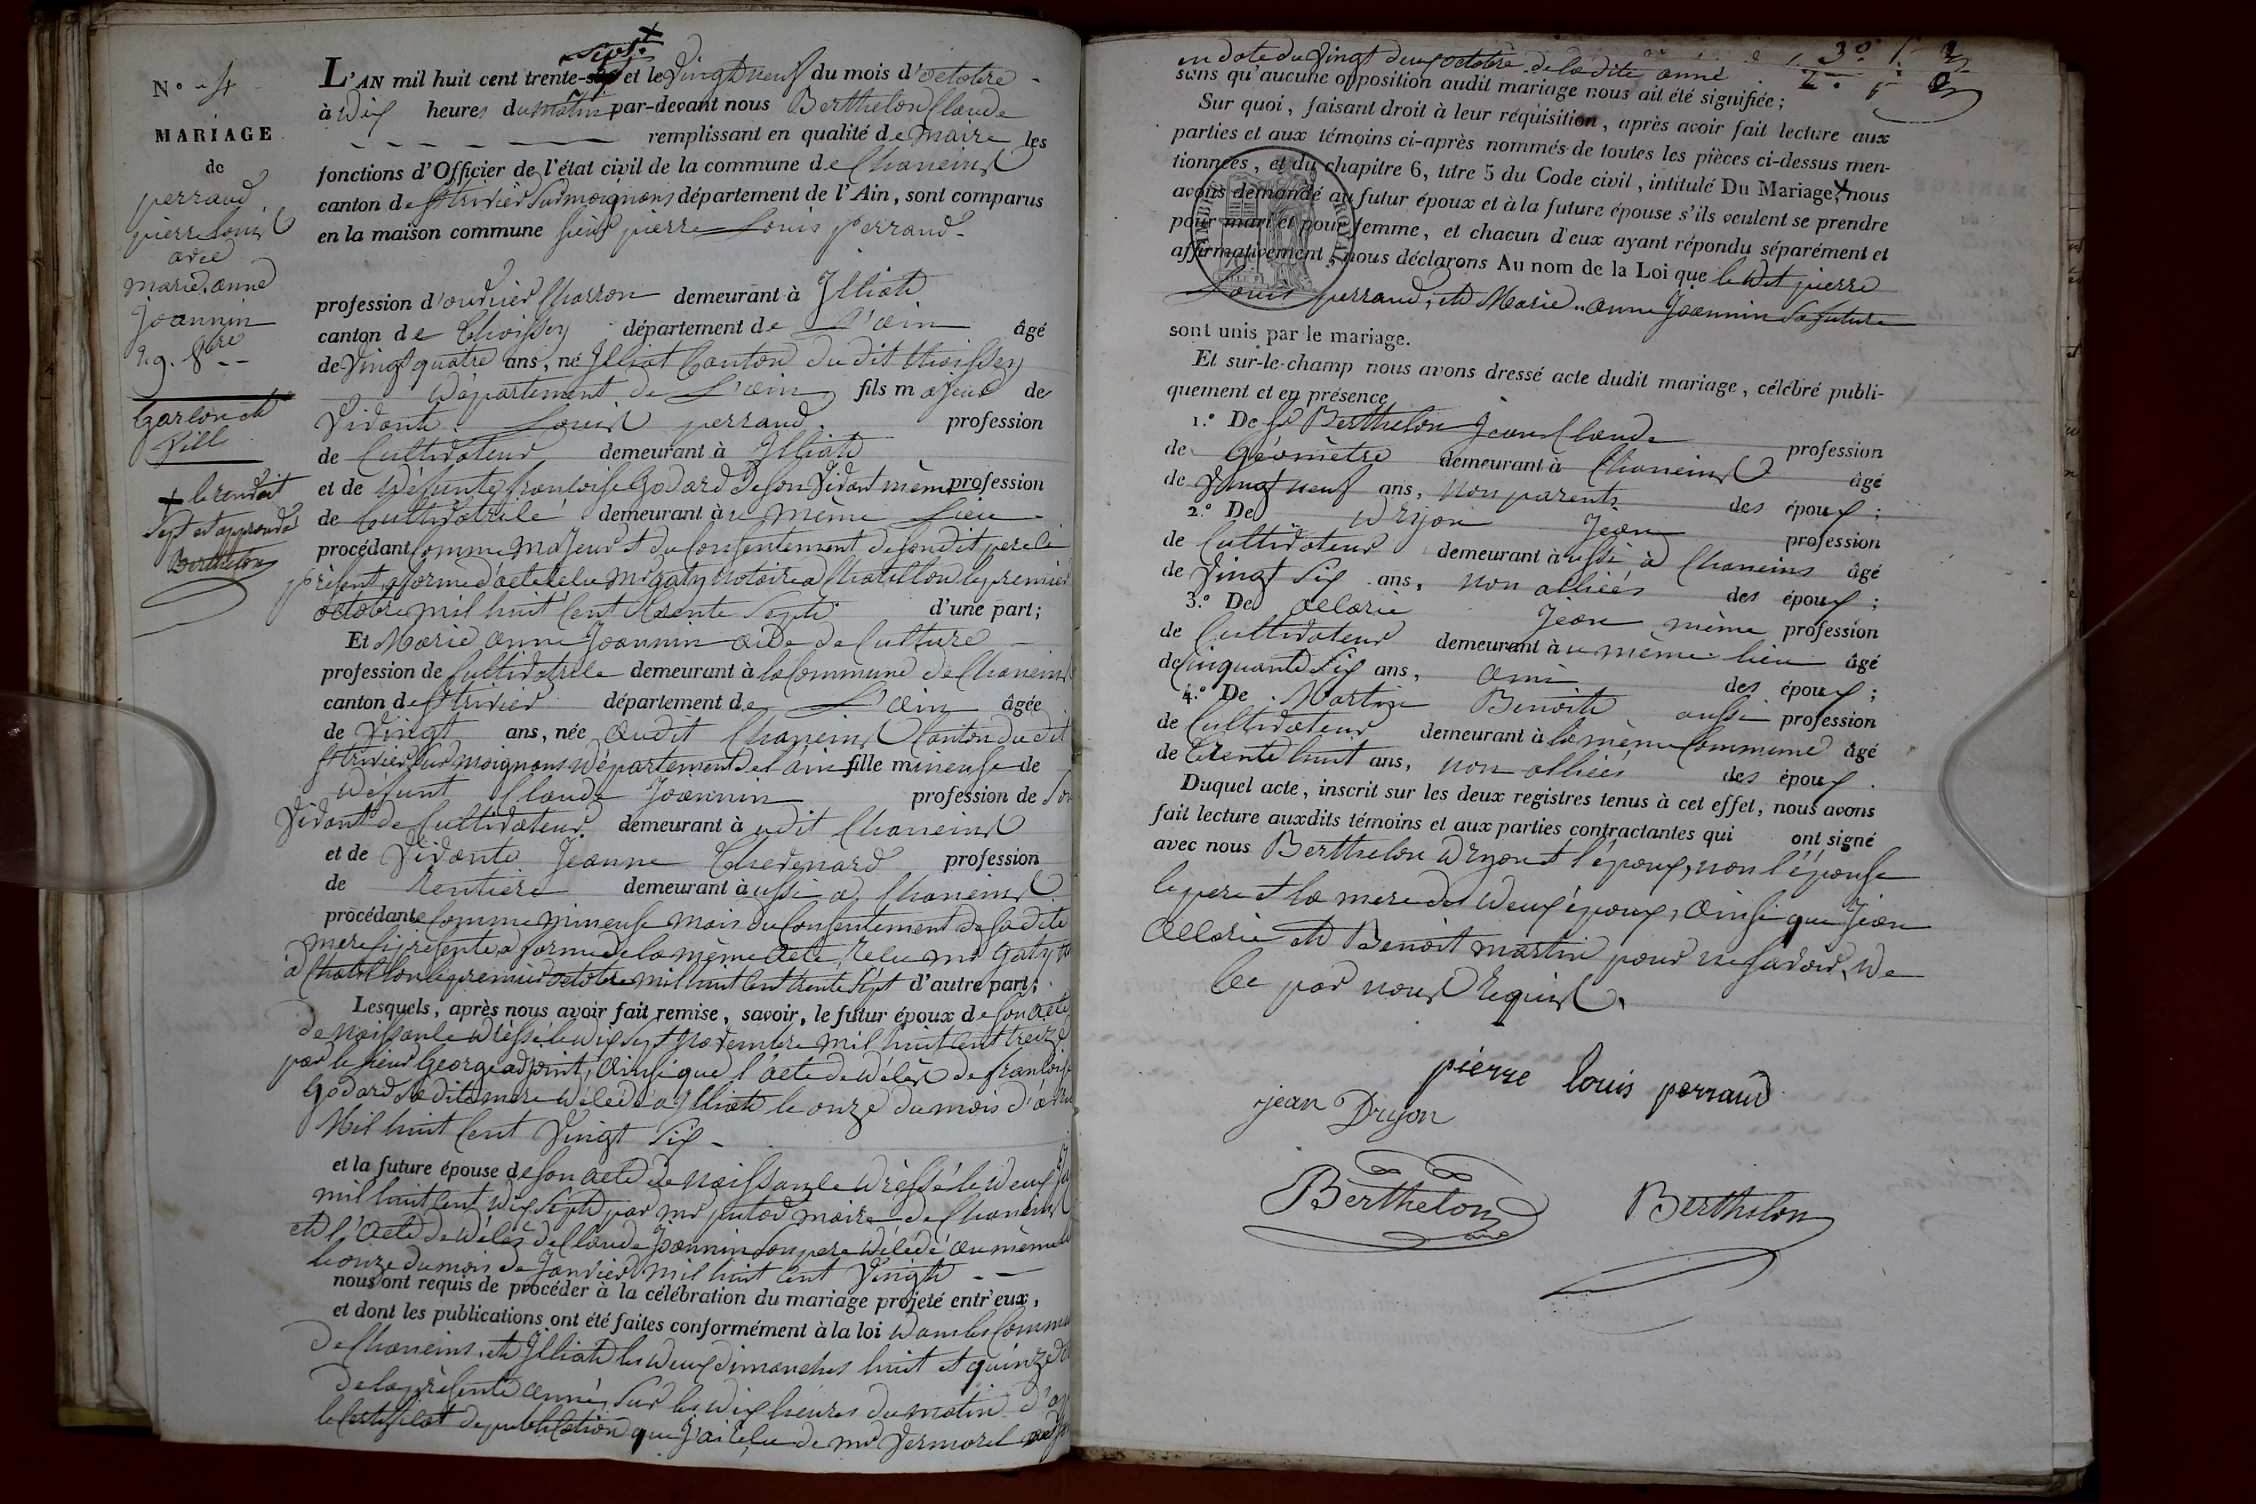 N.º 4
MARIAGE
de
perraud
pierre Louis
avec
marie anne
Joannin
29. 8bre
Garcon et
fille
+ le renvoi
sept est approuvé
Berthelon
sept +
L'AN mil huit cent trente-six et le Vingt neuf du mois d'octobre
à dix heures du matin par-devant nous Berthelon Claude
remplissant en qualité de Maire les
fonctions d'Officier de l'état civil de la commune de Chaneins
canton de St trivier Sur moignans département de l'Ain, sont comparus
en la maison commune sieur pierre Louis perraud
profession d'ouvrier Charron demeurant à Illiat
canton de Thoissey département de L'ain âgé
de Vingt quatre ans, né Illiat Canton du dit thoissey
Département de L'ain fils majeur de
Vivant Louis perraud profession
de Cultivateur demeurant à Illiat
et de Défunte francoise Godard de son Vivant même profession
de Cultivatrice demeurant à u même Lieu
procédant Comme Majeur et du Consentement de son dit pere ci
présent, a forme d'acte reçu Mr gaty Notaire a Chatillon le premier
octobre mil huit Cent trente Sept d'une part;
Et Marie anne Joannin aide de Culture
profession de Cultivatrice demeurant à la Commune de Chaneins
canton de St trivier département de L'ain âgée
de Vingt ans, née audit Chaneins Canton du dit
St trivier Sur moignans Département de l'ain fille mineuse de
Défunt Claude Joannin profession de Son
Vivant de Cultivateur demeurant à udit Chaneins
et de Vivante Jeanne Chevenard profession
de Rentiere demeurant à ussi a Chaneins
procédante Comme Mineuse Mais du Consentement de sa dite
mere ci présente a forme de la même acte, reçu mr Gaty
à Chatillon le premier octobre mil huit Cent trente Sept d'autre part;
Lesquels, après nous avoir fait remise, savoir, le futur époux de son acte
de Naissance dressé le dix sept Novembre Mil huit cent treize
par le sieur George adjoint, ainsi que l'acte de décès de francoise
Godard sa dite mere décédée a Illiat le onze du mois d'
Mil huit Cent Vingt Six
et la future épouse de son acte de Naissance dressé le deux
mil huit Cent dix Sept par mr maire de Chaneins
et l'acte de décès de Claude Joannin son pere décédé au même
le onze du mois de Janvier mil huit Cent Vingt
nous ont requis de procéder à la célébration du mariage projeté entr'eux,
et dont les publications ont été faites conformément à la loi dans les Commu
de Chaneins et Illiat les deux dimanches huit et quinze
de la présente année, sur les dix heures du matin
le certificat de publication que j'ai reçu de mr Vermorel
en date du Vingt deux octobre de la dite année
sans qu'aucune opposition audit mariage nous ait été signifiée;
Sur quoi, faisant droit à leur réquisition, après avoir fait lecture aux
parties et aux témoins ci-après nommés de toutes les pièces ci-dessus men-
tionnées, et du chapitre 6, titre 5 du Code civil, intitulé Du Mariage, nous
avons demandé au futur époux et à la future épouse s'ils veulent se prendre
pour mari et pour femme, et chacun d'eux ayant répondu séparément et
affirmativement, nous déclarons Au nom de la Loi que le dit pierre
Louis perraud, et Marie anne Joannin Sa future
sont unis par le mariage.
Et sur-le-champ nous avons dressé acte dudit mariage, célébré publi-
quement et en présence
1.º De Sr Berthelon Jean Claude profession
de Géomètre demeurant à Chaneins âgé
de Vingt neuf ans, Non parents des époux;
2.º De Dryon Jean profession
de Cultivateur demeurant à ussi à Chaneins âgé
de Vingt Six ans, Non alliés des époux;
3.º De allarie Jean même profession
de Cultivateur demeurant à u même lieu âgé
de Cinquante Six ans, ami des époux;
4.º De Martin Benoit aussi profession
de Cultivateur demeurant à la même Commune âgé
de trente huit ans, non alliés des époux.
Duquel acte, inscrit sur les deux registres tenus à cet effet, nous avons
fait lecture auxdits témoins et aux parties contractantes qui ont signé
avec nous Berthelon Dryon et l'époux, non l'épouse
le pere et la mere des deux époux, ainsi que Jean
Allarie et Benoit martin pour ne savoir, de
ce par nous Requis.
pierre louis perraud
jean Dryon
Berthelon
Berthelon